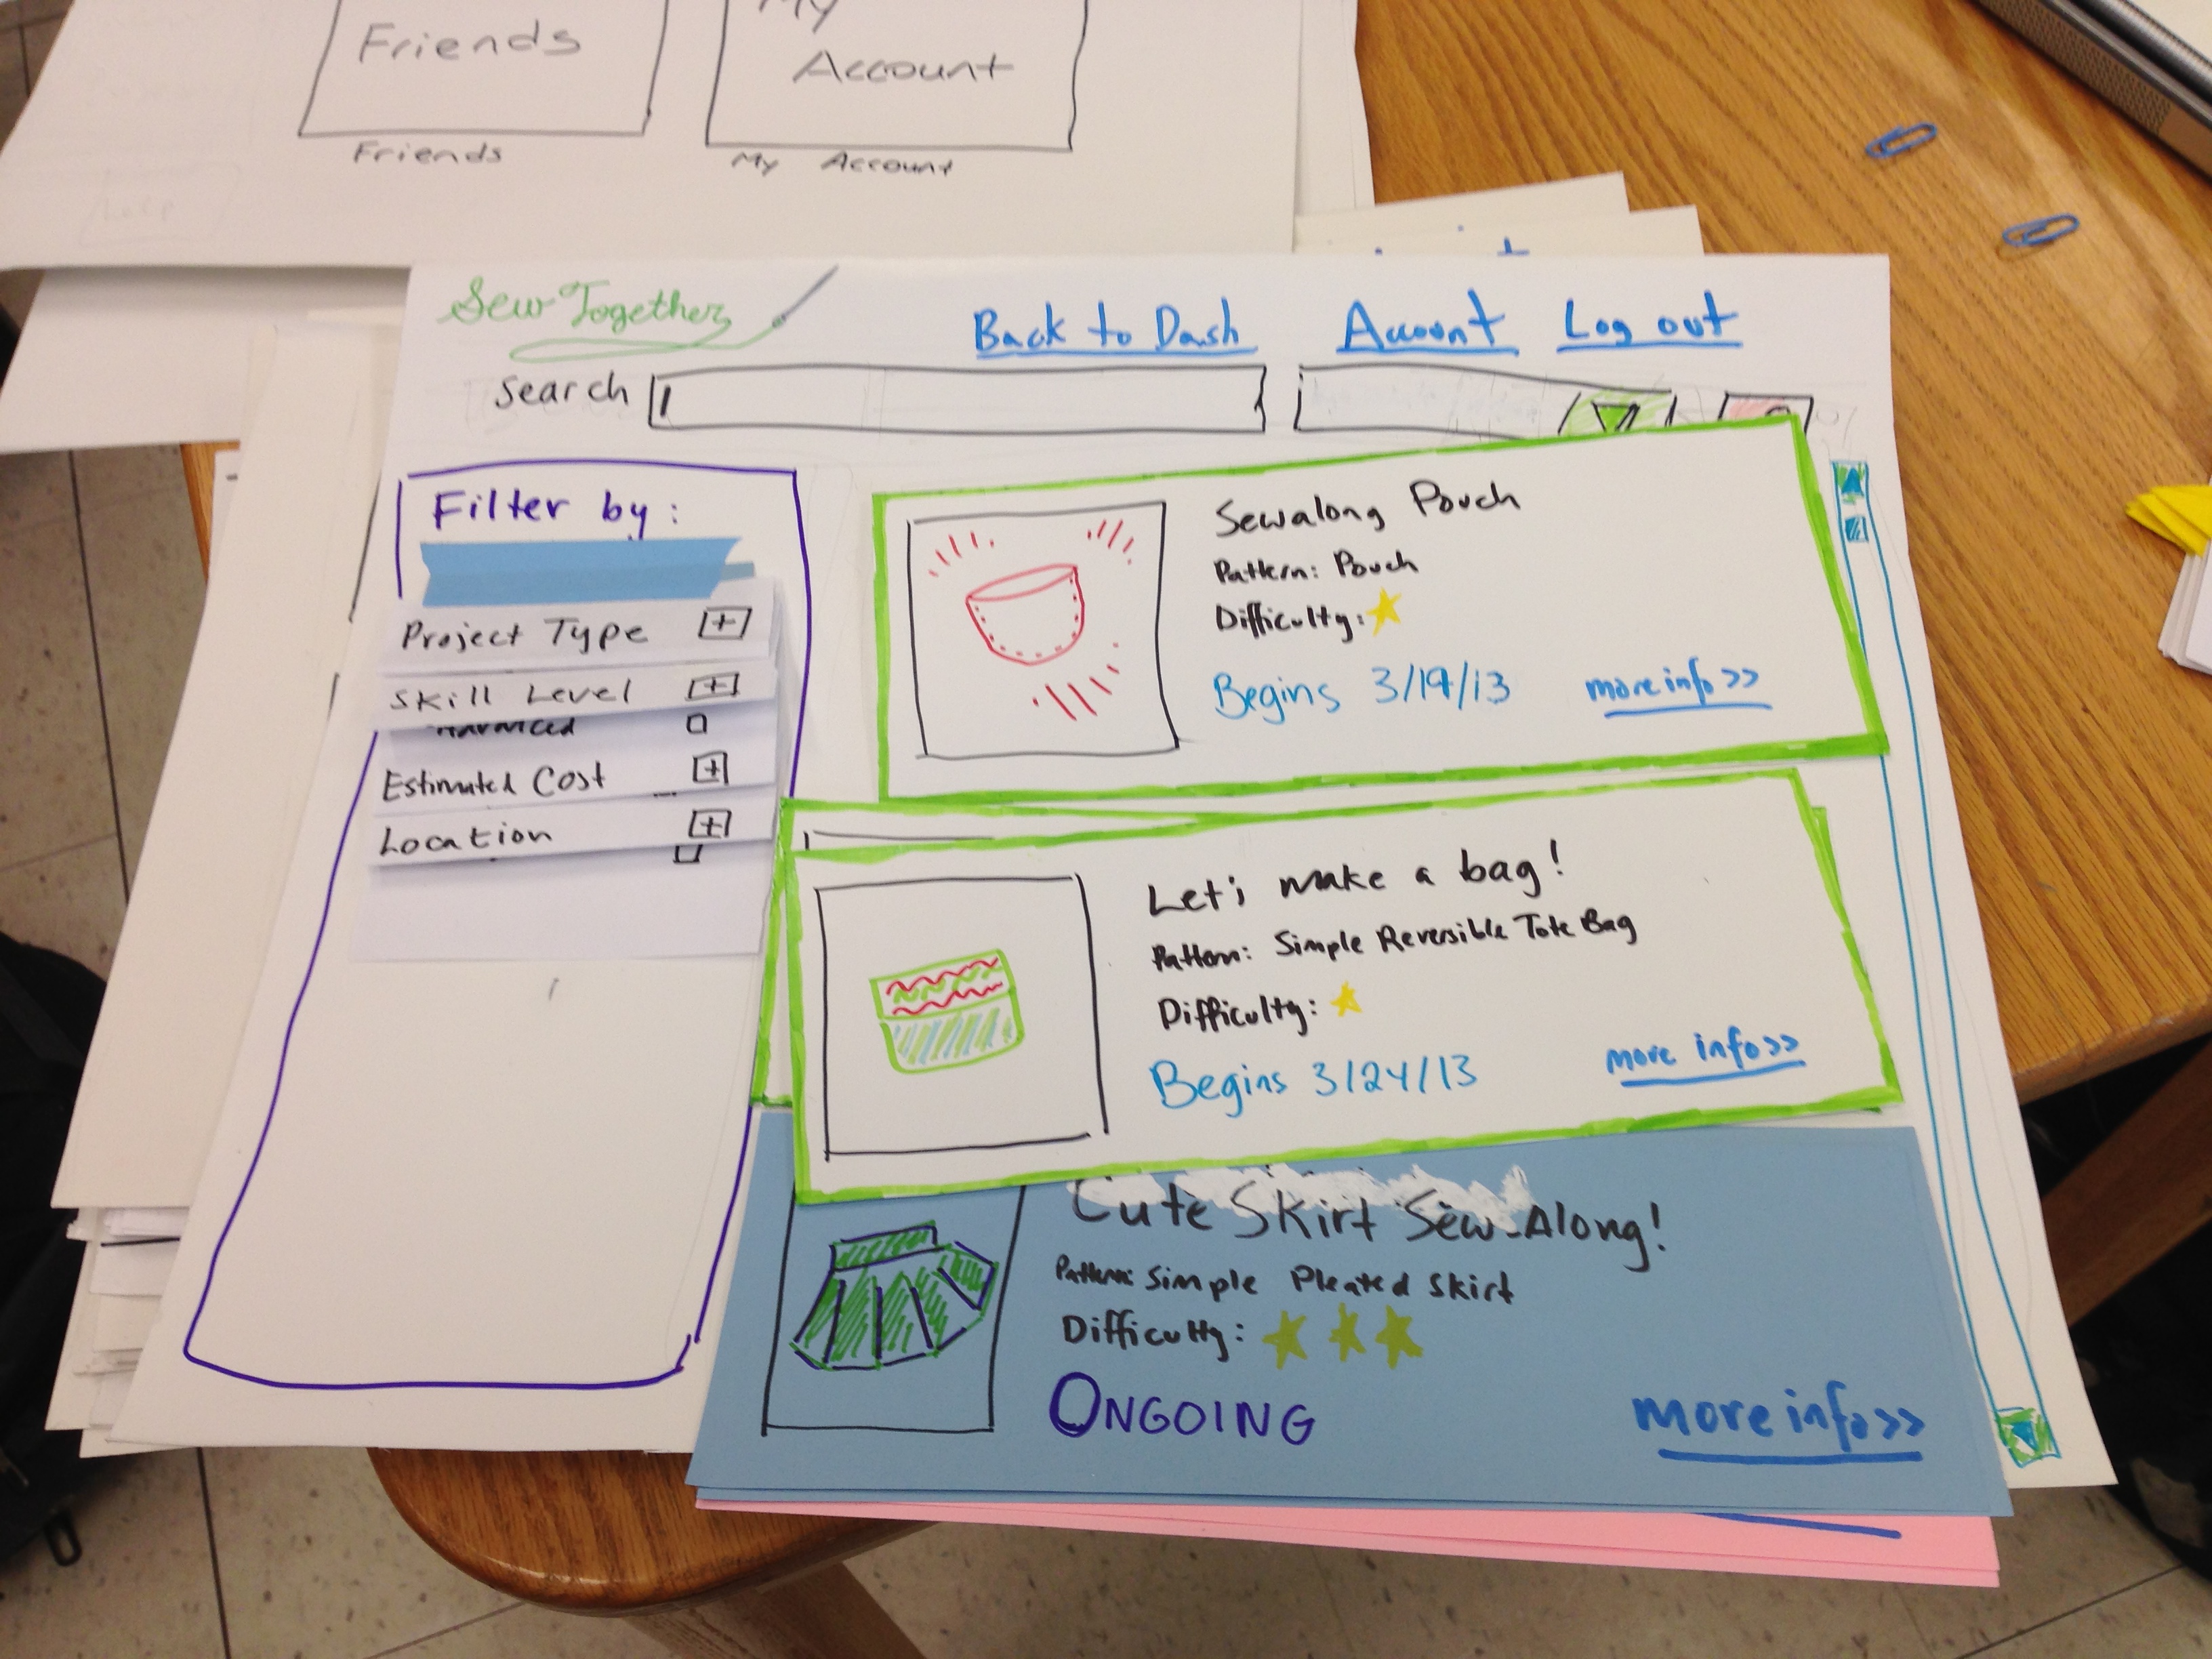 Friends
My
Account
Friends
My Account
help
Sew Together
Back to Dash
Account
Log out
Search
Filter by:
Project Type +
Skill Level +
Advanced
Estimated Cost +
Location +
Sewalong Pouch
Pattern: Pouch
Difficulty:
Begins 3/19/13
more info >>
Let's make a bag!
Pattern: Simple Reversible Tote Bag
Difficulty:
Begins 3/24/13
more info >>
Cute Skirt Sew-Along!
Pattern: Simple Pleated Skirt
Difficulty:
ONGOING
more info >>